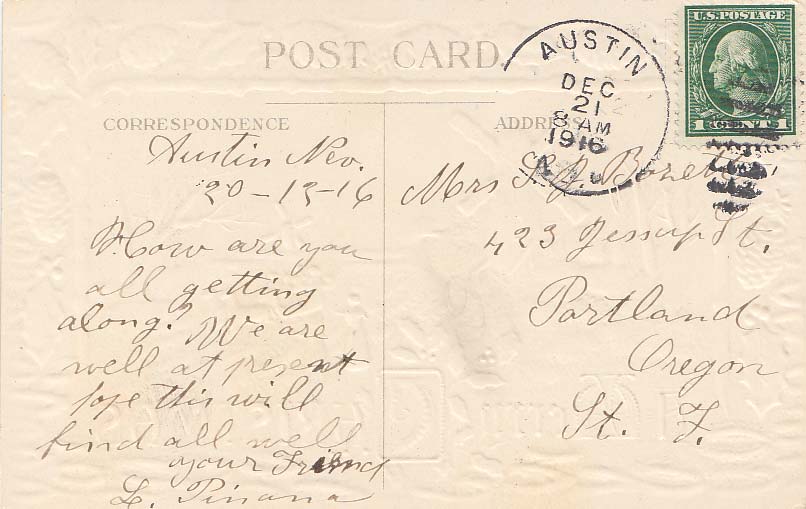 POST CARD.
U.S. POSTAGE
1 CENT 1
AUSTIN
DEC
21
8 AM
1916
CORRESPONDENCE
ADDRESS
Austin Nev.
20-12-16
How are you
all getting
along? We are
well at present
hope this will
find all well
your Friend
L. Pinana
Mrs
423 Jessup St.
Portland
Oregon
St. J.